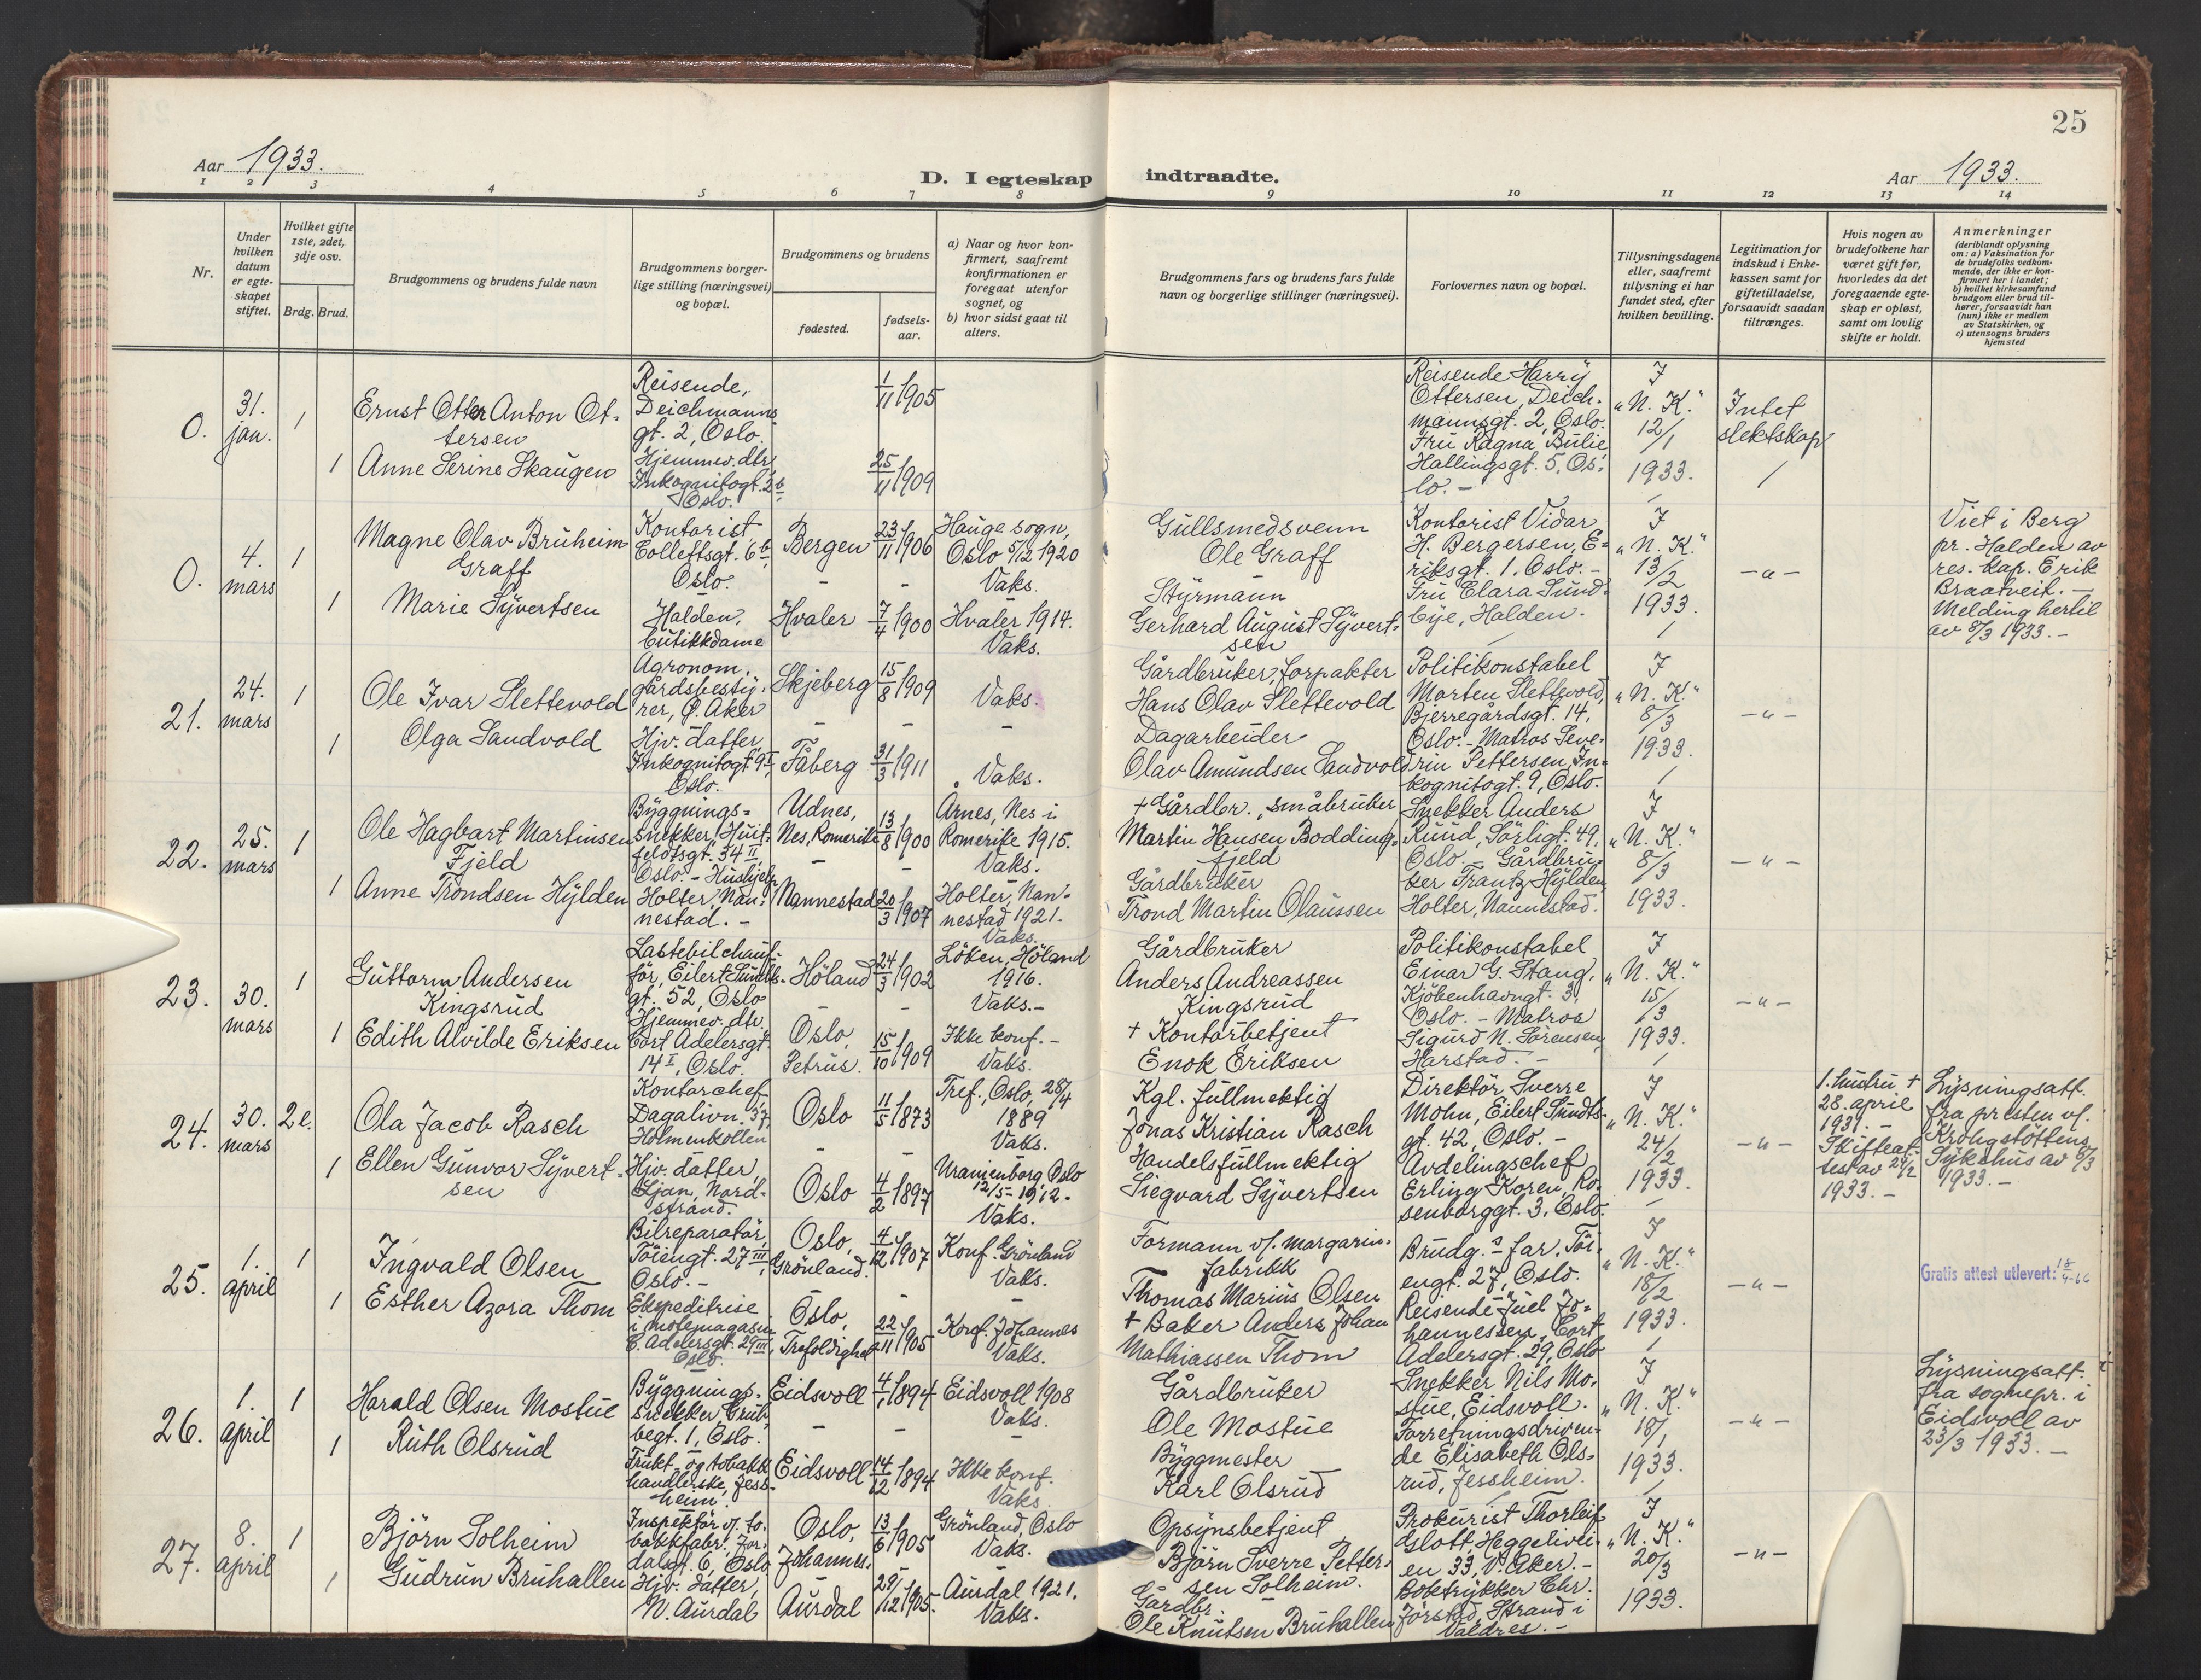 25
Aar 1933.
D. I egteskap indtraadte.
Aar 1933.
1 2 3 4 5 6 7 8 9 10 11 12 13 14
Nr.
Under hvilken datum er egteskapet stiftet.
Hvilket gifte 1ste, 2det, 3dje osv.
Brdg. Brud.
Brudgommens og brudens fulde navn
Brudgommens borgerlige stilling (næringsvei) og bopæl.
Brudgommens og brudens
fødested.
fødselsaar.
a) Naar og hvor konfirmert, saafremt konfirmationen er foregaat utenfor sognet, og
b) hvor sidst gaat til alters.
Brudgommens fars og brudens fars fulde navn og borgerlige stillinger (næringsvei).
Forlovernes navn og bopæl.
Tillysningsdagene eller, saafremt tillysning ei har fundet sted, efter hvilken bevilling.
Legitimation for indskud i Enkekassen samt for giftetilladelse, forsaavidt saadan tiltrænges.
Hvis nogen av brudefolkene har været gift før, hvorledes da det foregaaende egteskap er opløst, samt om lovlig skifte er holdt.
Anmerkninger
(deriblandt oplysning om: a) Vaksination for de brudefolks vedkommende, der ikke er konfirmert her i landet;
b) hvilket kirkesamfund brudgom eller brud tilhører, forsaavidt han (hun) ikke er medlem av Statskirken, og
c) utensogns bruders hjemsted
0. 31. jan. 1
Ernst Otter Anton Ottersen
Reisende, Deichmanns gt. 2, Oslo.
1/11 1905
Reisende Harry Ottersen, Deichmannsgt. 2, Oslo.
Fru Ragna Bulie Hallingsgt. 5, Oslo. -
I "N. K." 12/1 1933.
Intet slektskap
1 Anne Serine Skaugen
Hjemmev. dtr. Inkognitogt. 2b Oslo.
25/11 1909
0. 4. mars 1
Magne Olav Bruheim Graff
Kontorist, Collettsgt. 6b, Oslo.
Bergen 23/11 1906
Hauge sogn, Oslo 5/12 1920 Vaks.
Gullsmedsvenn Ole Graff
Kontorist Vidar H. Bergersen, Eriksgt. 1. Oslo. -
Fru Clara Sundbye, Halden.
I "N. K." 13/2 1933.
- " -
Viet i Berg pr. Halden av res. kap. Erik Braatveit. - Melding hertil av 8/3 1933. -
1 Marie Syvertsen
Halden, butikkdame
Hvaler 7/4 1900
Hvaler 1914. Vaks.
Styrmann Gerhard August Syvertsen
21. 24. mars 1
Ole Ivar Slettevold
Agronom, gårdsbestyrer, Ø. Aker
Skjeberg 15/8 1909
Vaks.
Gårdbruker, forpakter Hans Olav Slettevold
Politikonstabel Morten Slettevold, Bjerregårdsgt. 14, Oslo. - Matros Severin Pettersen, Inkognitogt. 9, Oslo.
I "N. K." 8/3 1933.
- " -
1 Olga Sandvold
Hjv. datter, Inkognitogt. 9I, Oslo.
Fåberg 31/3 1911
Vaks.
Dagarbeider Olav Amundsen Sandvold
22. 25. mars 1
Ole Hagbart Martinsen Fjeld
Bygningssnekker, Huitfeldtsgt. 34 II, Oslo. -
Udnes, Nes, Romerike 13/8 1900
Årnes, Nes i Romerike 1915. Vaks.
+ Gårdbr., småbruker Martin Hansen Boddingfjeld
Snekker Anders Ruud, Sörligt. 49, Oslo. - Gårdbruker Frantz Hylden, Holter, Nannestad.
I "N. K." 8/3 1933.
- " -
1 Anne Trondsen Hylden
Hushjelp Holter, Nannestad. -
Nannestad 20/3 1907
Holter, Nannestad 1921. Vaks.
Gårdbruker Trond Martin Olaussen
23. 30. mars 1
Guttorm Andersen Kingsrud
Lastebilchauffør, Eilert Sundts gt. 52, Oslo
Höland 24/3 1902
Löken, Höland 1916. Vaks. -
Gårdbruker Anders Andreassen Kingsrud
Politikonstabel Einar G. Stang, Kjöbenhavngt. 3, Oslo. - Matros Sigurd N. Sörensen, Harstad. -
I "N. K." 15/3 1933.
- " -
1 Edith Alvilde Eriksen
Hjemmev. dtr. Cort Adelersgt. 14 I, Oslo.
Oslo, Petrus. 15/10 1909
Ikke konf. - Vaks.
+ Kontorbetjent Enok Eriksen
24. 30. mars 2e.
Ola Jacob Rasch
Kontorchef, Dagalivn. 37, Holmenkollen
Oslo 11/5 1873
Tref., Oslo, 28/4 1889 Vaks.
Kgl. fullmektig Jonas Kristian Rasch
Direktör Sverre Mohn, Eilert Sundts gt. 42, Oslo. -
Avdelingschef Erling Koren, Rosenborggt. 3, Oslo.
I "N. K." 24/2 1933.
- " -
1. hustru + 28. april 1931. - Skifteattest av 24/2 1933. -
Lysningsatt. fra presten v/. Krohgstöttens Sykehus av 8/3 1933. -
1 Ellen Gunvor Syvertsen
Hjv. datter, Ljan, Nordstrand.
Oslo 4/2 1897
Uranienborg, Oslo 12/5 - 1912. - Vaks.
Handelsfullmektig Siegvard Syvertsen
25. 1. april 1
Ingvald Olsen
Bilreparatör, Töiengt. 27 III, Oslo. -
Oslo, Grönland. 4/12 1907
Konf. Grönland Vaks.
Formann v/. margarinfabrikk Thomas Marius Olsen
Brudg.s far, Töiengt. 27, Oslo.
Reisende Juel Johannessen, Cort Adelersgt. 29, Oslo
I "N. K." 18/2 1933.
- " -
Gratis attest utlevert: 18/4-66
1 Esther Azora Thom
Ekspeditrise i motemagasin C. Adelersgt. 29 III, Oslo.
Oslo, Trefoldighet 22/11 1905
Konf. Johannes Vaks.
+ Baker Anders Johan Mathiassen Thom
26. 1. april 1
Harald Olsen Mostue
Bygningssnekker, Grubbegt. 1, Oslo.
Eidsvoll 4/1 1894
Eidsvoll 1908 Vaks.
Gårdbruker Ole Mostue
Snekker Nils Mostue, Eidsvoll.
Forretningsdrivende Elisabeth Olsrud, Jessheim.
I "N. K." 18/1 1933.
- " -
Lysningsatt. fra sognepr. i Eidsvoll av 23/3 1933. -
1 Ruth Olsrud
Frukt- og tobakkhandlerske, Jessheim.
Eidsvoll 14/12 1894
Ikke konf. Vaks.
Byggmester Karl Olsrud
27. 8. april 1
Björn Solheim
Inspektör v/. tobakkfabr., Jordalsgt. 6, Oslo
Oslo, Johannes. 13/6 1905
Grönland, Oslo Vaks.
Opsynsbetjent Björn Sverre Pettersen Solheim.
Prokurist Thorleif Glott, Heggeliveien 33, V. Aker. -
Boktrykker Chr. Jörstad, Strand i Valdres. -
I "N. K." 20/3 1933.
- " -
1 Gudrun Bruhallen
Hjv. datter, N. Aurdal
Aurdal 29/12 1905.
Aurdal 1921. Vaks.
Gårdbr. Ole Knutsen Bruhallen